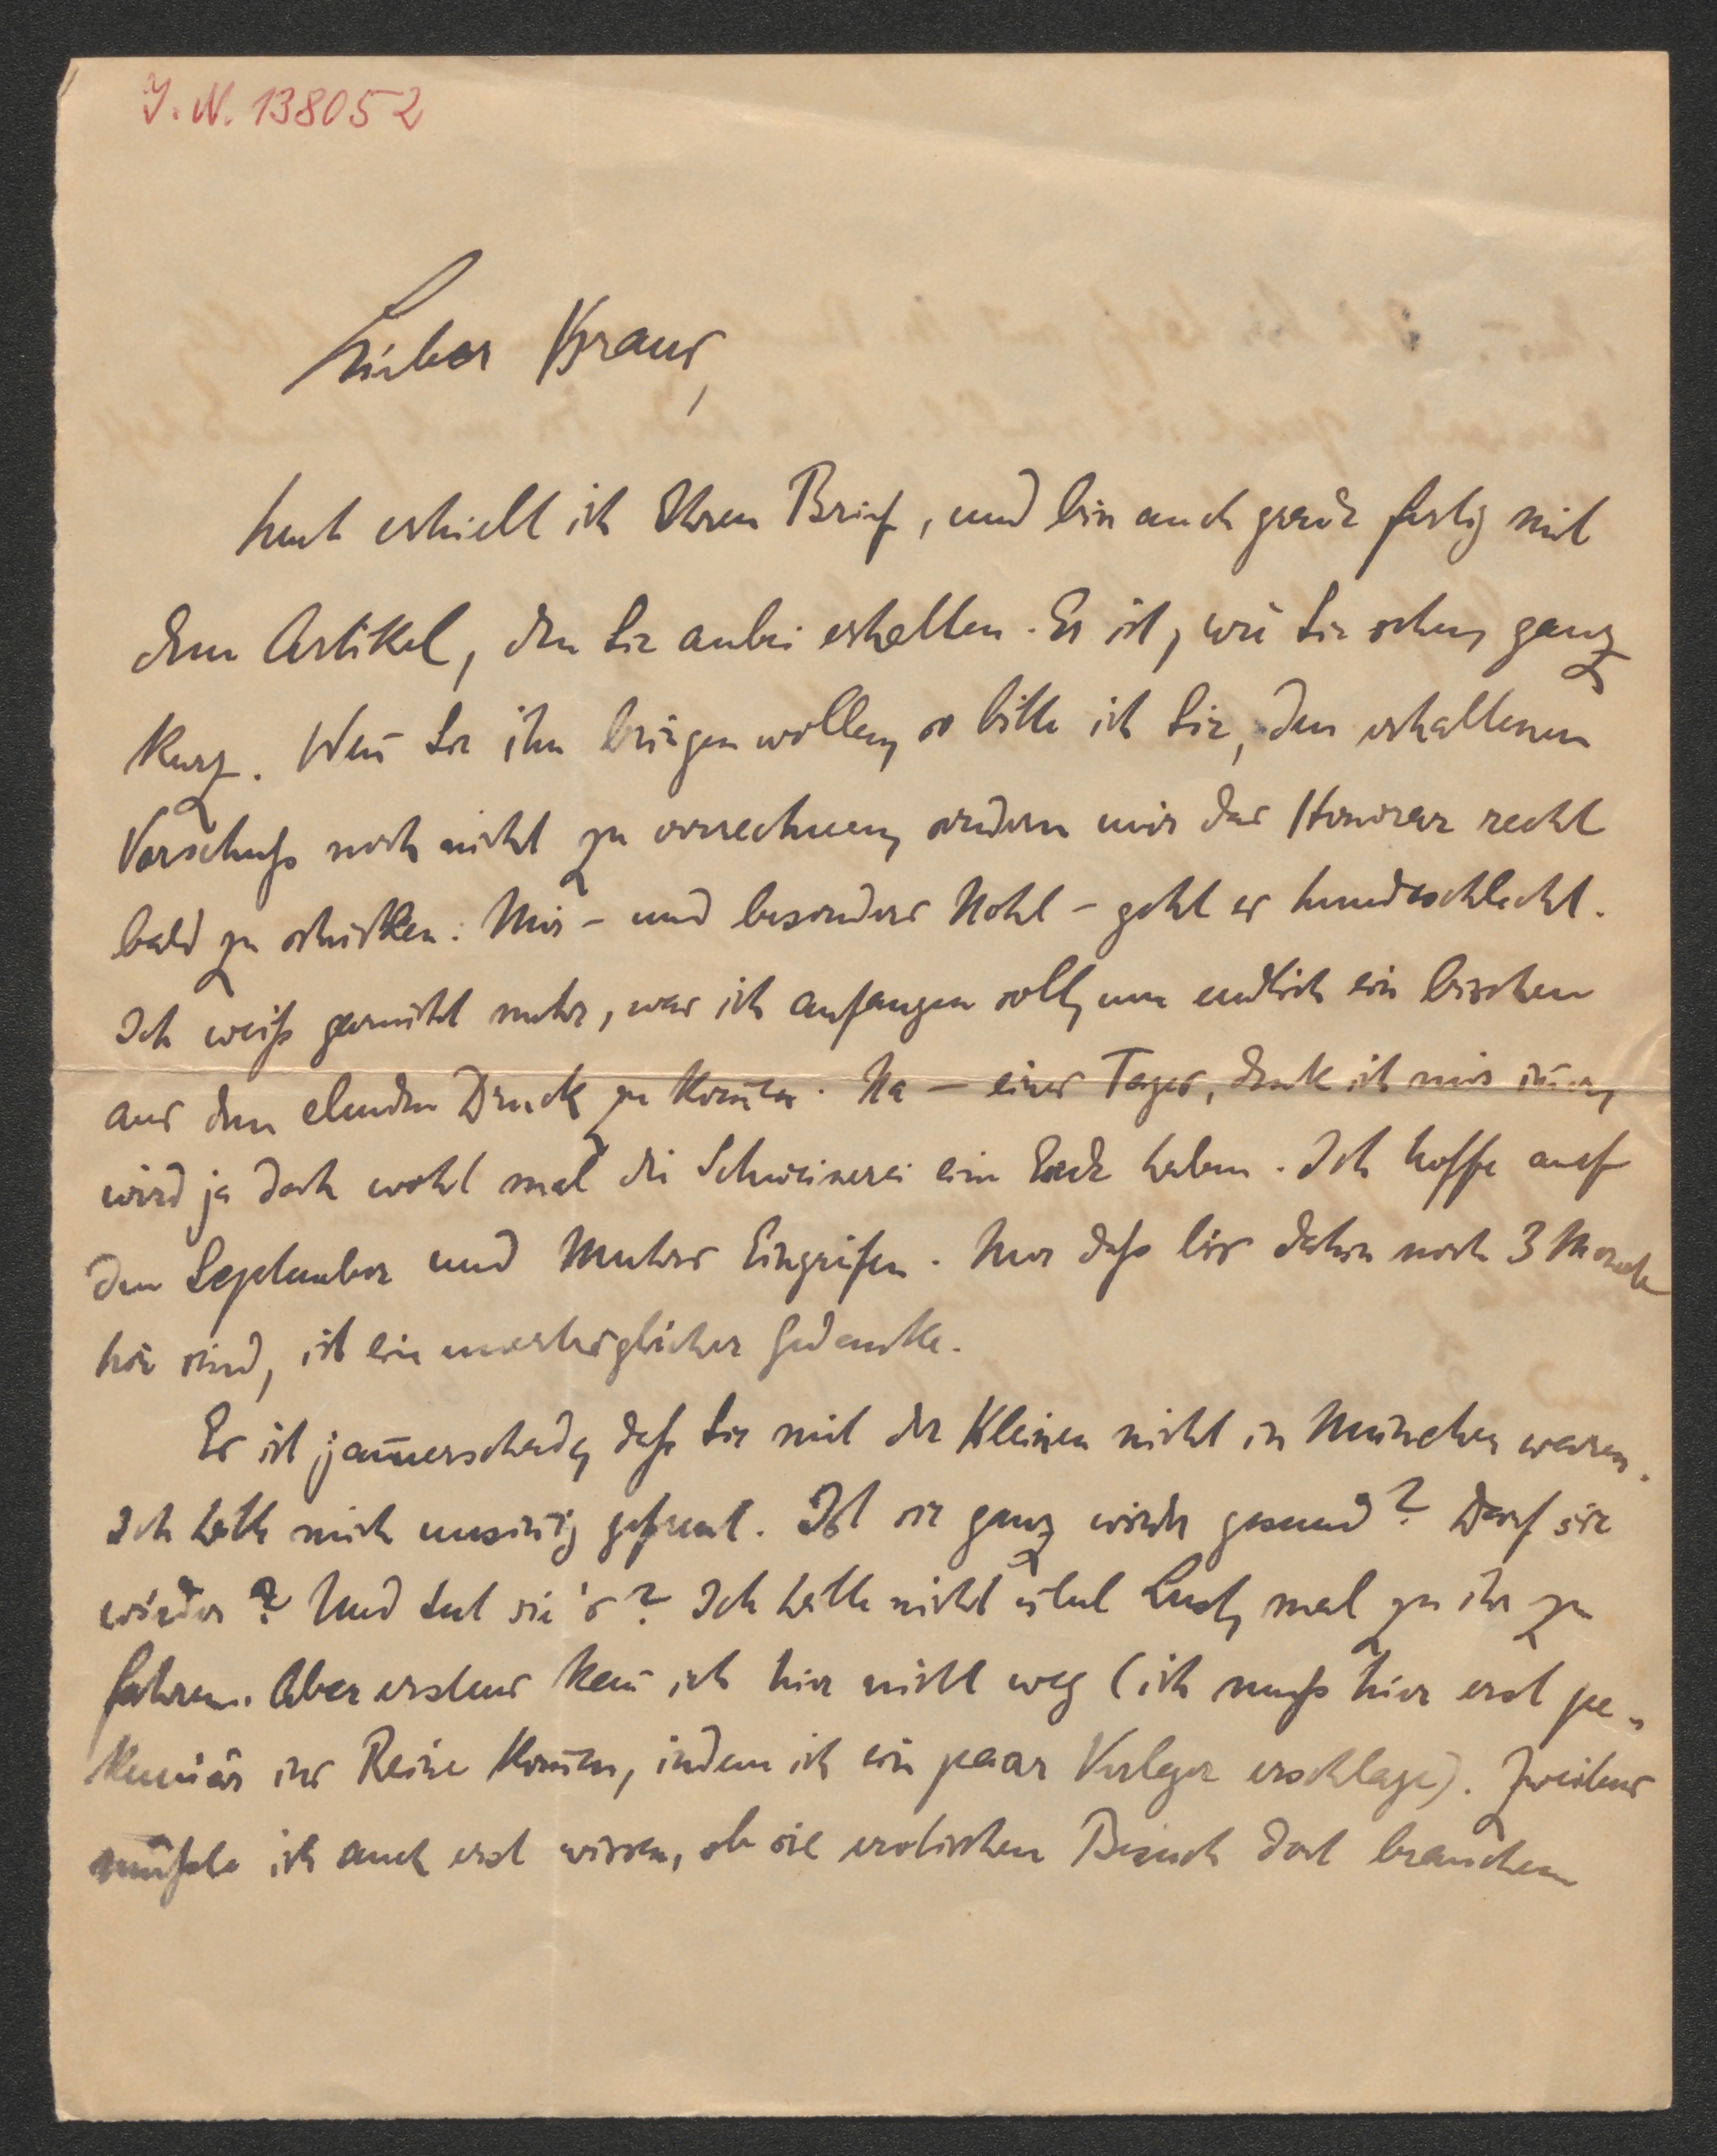 J. N. 138052
Lieber Kraus,
heut erhielt ich Ihren Brief, und bin auch grade fertig mit
dem Artikel, den Sie anbei erhalten. Er ist, wie Sie sehen, ganz
kurz. Wen̄ Sie ihn bringen wollen, so bitte ich Sie, den erhaltenen
Vorschuß noch nicht zu verrechnen, sondern mir das Honorar recht
bald zu schicken. Mir – und besonders Nohl – geht es hundsschlecht.
Ich weiß garnicht mehr, was ich anfangen soll, um endlich ein bischen
aus dem elenden Druck zu kom̄en. Na – eines Tages, denk ich mir im̄er,
wird ja doch wohl mal die Schweinerei ein Ende haben. Ich hoffe auf
den September und Mutters Eingreifen. Nur daß bis dahin noch 3 Monate
hin sind, ist ein unerträglicher Gedanke.
Es ist jam̄erschade, daß Sie mit der Kleinen nicht in München waren.
Ich hätte mich unsin̄ig gefreut. Ist sie ganz wieder gesund? Darf sie
wieder? Und tut sie's? Ich hätte nicht übel Lust, mal zu ihr zu
fahren. Aber erstens kan̄ ich hier nicht weg (ich muß hier erst pe-
kuniär ins Reine kom̄en, indem ich ein paar Verleger erschlage). Zweitens
müßte ich auch erst wissen, ob sie erotischen Besuch dort brauchen